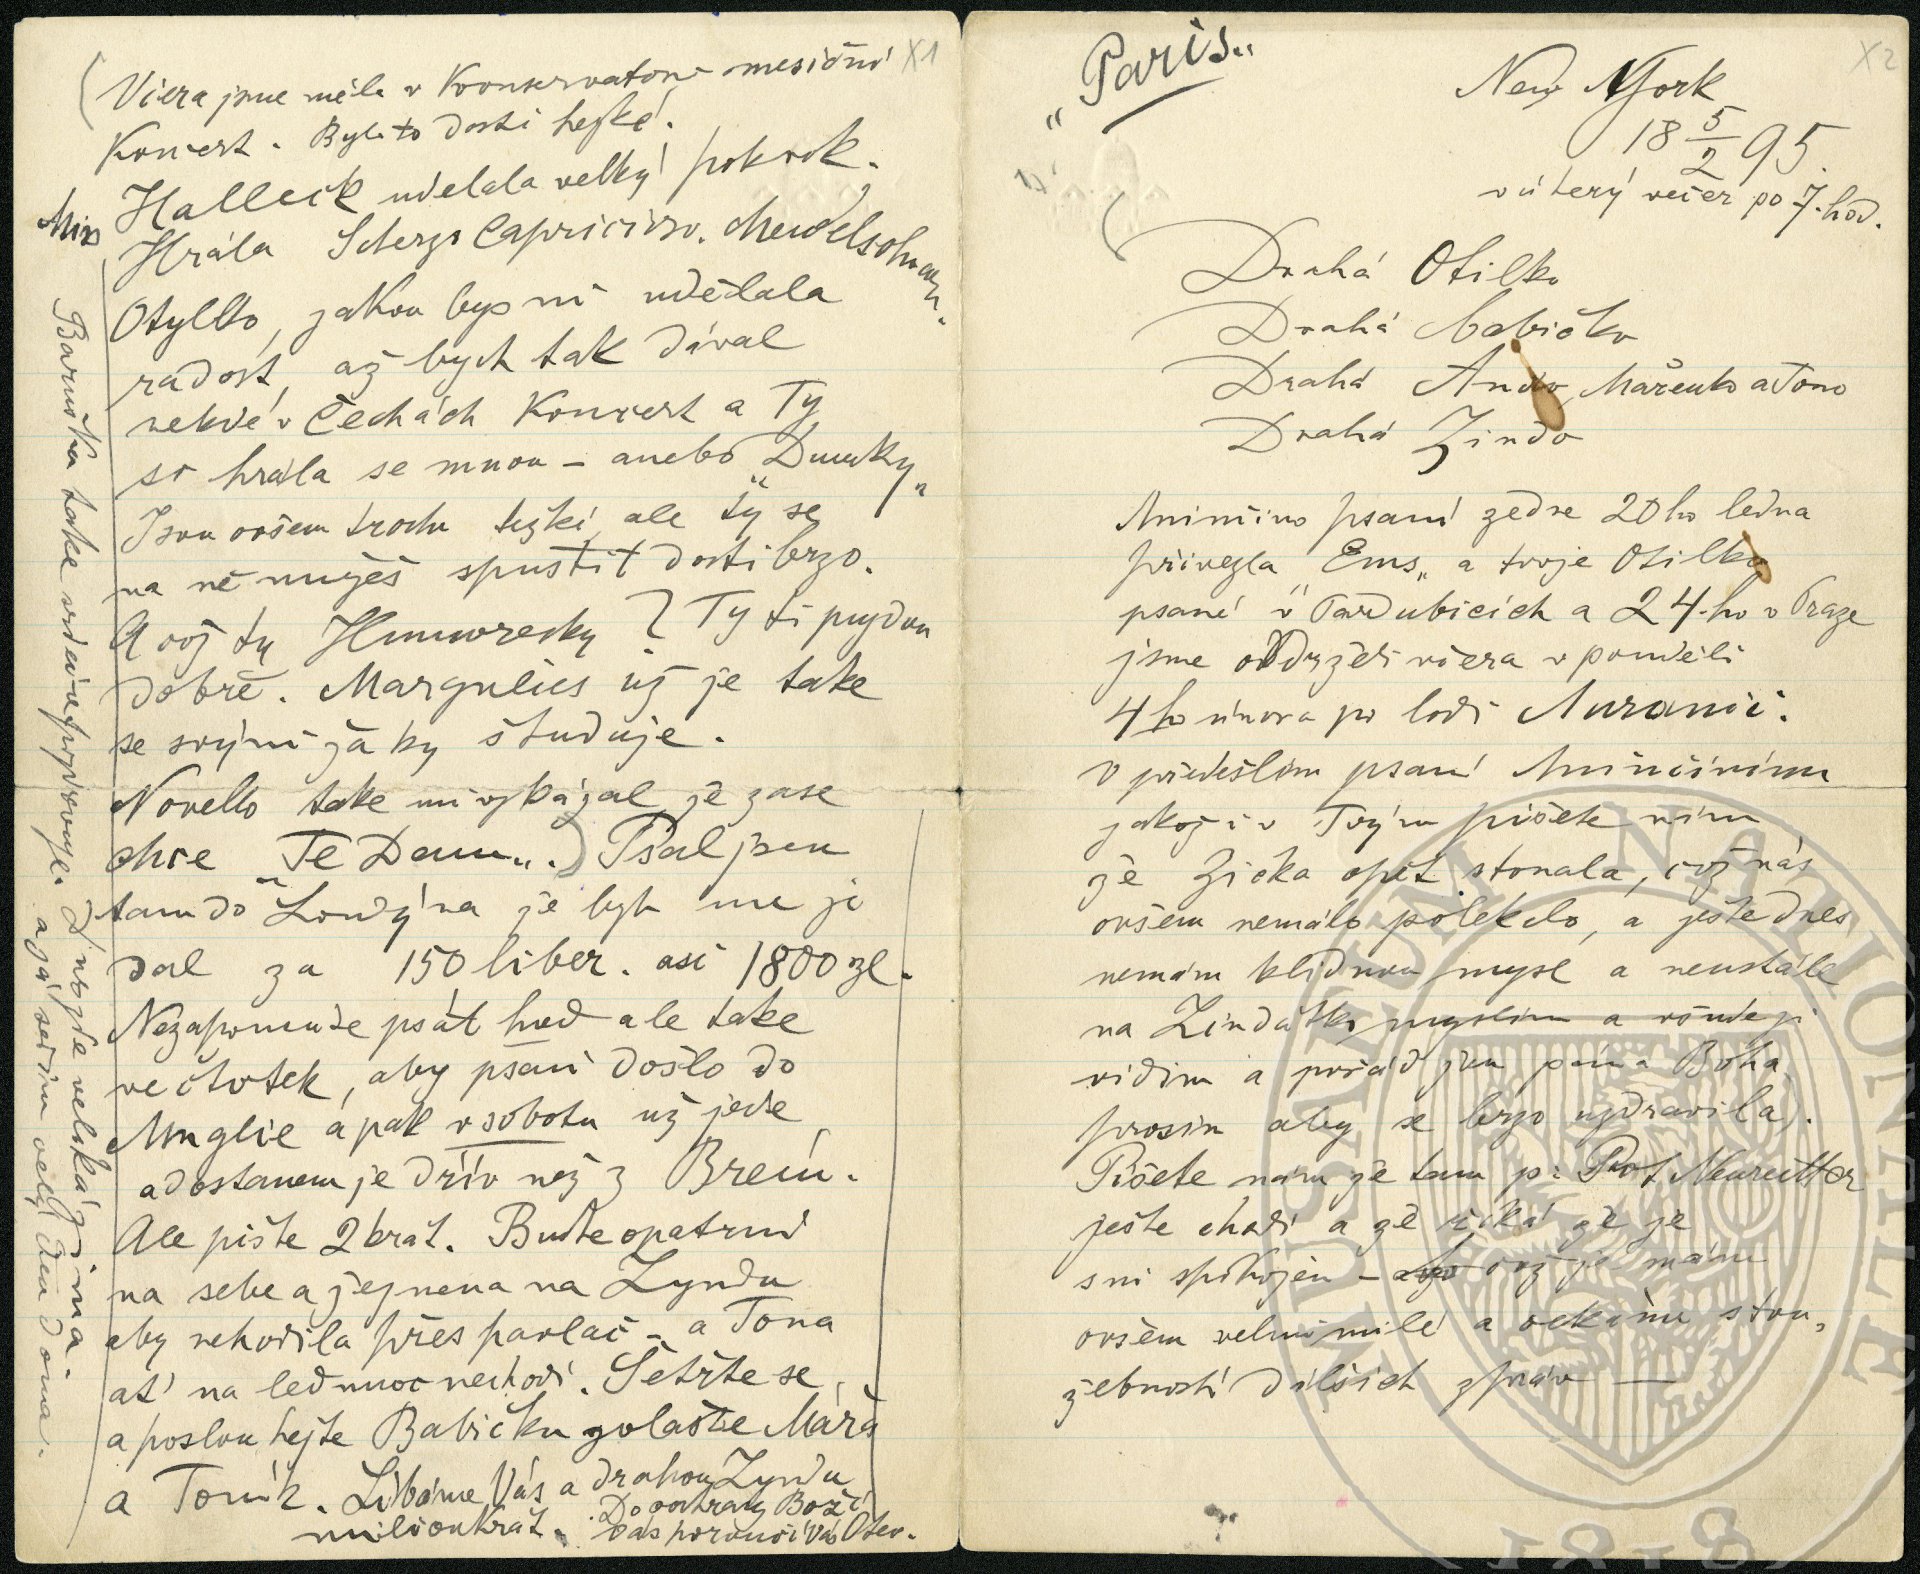 X1
Včera jsme měli v Konservatoři mesiční
Koncert. Bylo to dosti hezké.
Miss
Halleck udelala velký pokrok.
Hrála Scherzo Capricioso. Mendelsohna.
Otylko, jakou bys mi udělala
radost, až bych tak dával
nekde v Čechách Koncert a Ty
hrála se mnou – anebo „Dumky„
Jsou ovšem trochu tezké, ale ty se
na ně mužeš spustit dosti brzo.
A což ty Humoresky? Ty ti pujdou
dobrě. Margulies už je take
se svými žáky študuje.
Novello take mi vzkázal, že zase
chce „Te Deum„.) Psal jsem
tam do Londýna že bych mu je
dal za 150 liber. asi 1800 zl.
Nezapomeňte psát hned ale take
ve čtvtek, aby psaní došlo do
Anglie a pak v sobotu už jede
a dostanem je dřív než z Brem.
Ale pište 2 krat. Buďte opatrní
na sebe a žejmena na Zyndu
aby nehodila přes pavlač – a Tona
ať na led moc nechodí. Šetřte se
a poslouchejte Babičku zvlaště Mářa
a Toník. Líbáme Vás a drahou Zyndu
milionkrát. Do ochrany Boží
Vás poroučí Váš Otec.
Baruška take
zde veliká zima.
a já sedím celý den doma.
X2
„Paris„
New York
18 5/2 95.
v úterý večer po 7. hod.
Drahá Otilko
Drahá babičko
Drahá Ando, Mařenko a Tono
Drahá Zindo
Aninčino psaní ze dne 20ho ledna
přivezla „Ems„ a tvoje Otilko
psané v Pardubicích a 24.ho v Praze
jsme obdrželi včera v pondělí
4ho února po lodi Auranii.
V předešlém psaní Aninčiným
jakož i v Tvým píšete nám
že Zička opět stonala, což nás
ovšem nemálo polekalo, a ješte dnes
nemám klidnou mysl a neustále
na Zinďátko myslím a všude ji
vidím a pořád jen pána Boha
prosím aby se brzo uzdravila).
Píšete nám že tam p: Prof Neureutter
ješte chodí a že říká že je
s ní spokojen – což je nám
ovšem velmi milé a očekáme s tou„
žebností dalších zpráv —
MUSAEUM NATIONALE
1818